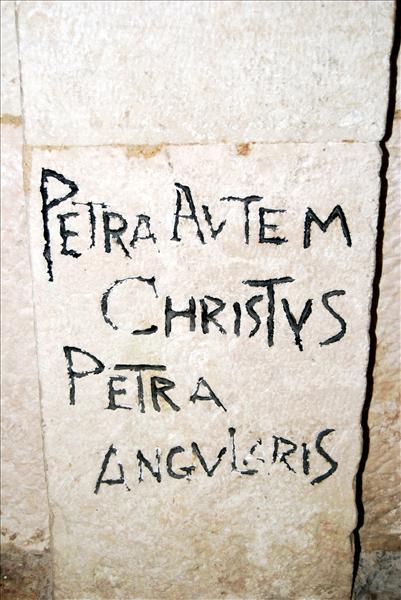 PETRA AVTEM
CHRISTVS
PETRA
ANGVLARIS